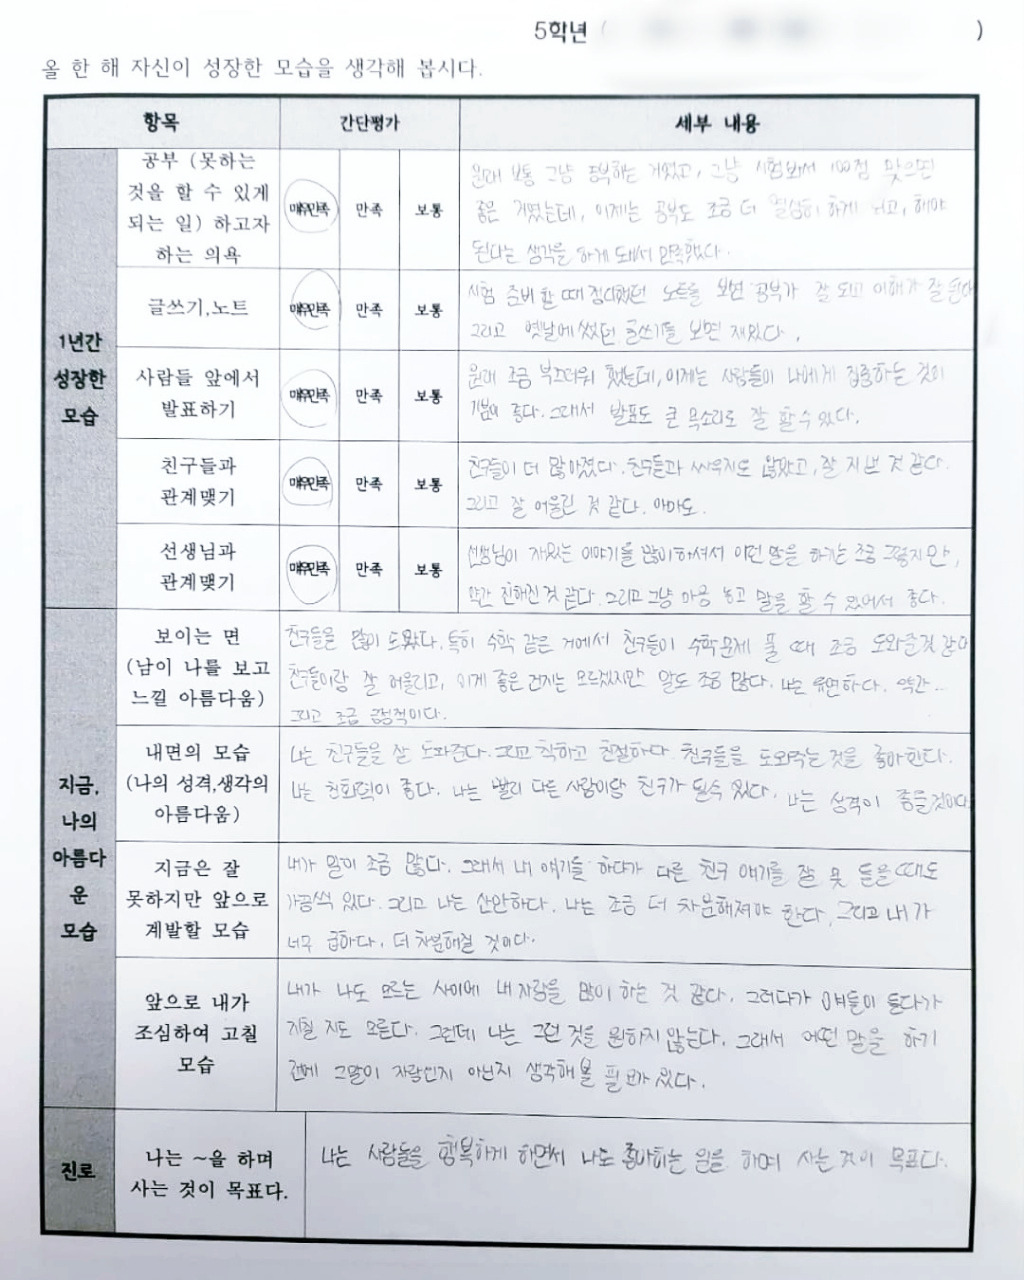 5학년 (                    )
올 한 해 자신이 성장한 모습을 생각해 봅시다.
항목 간단평가 세부 내용
1년간
성장한
모습
공부 (못하는
것을 할 수 있게
되는 일) 하고자
하는 의욕
매우만족 만족 보통
원래 보통 그냥 공부하는 거였고, 그냥 시험봐서 100점 맞으면
좋은 거였는데, 이제는 공부도 조금 더 열심히 하게 되고, 해야
된다는 생각을 하게 돼서 만족했다.
글쓰기,노트
매우만족 만족 보통
시험 준비 할 때 정리했던 노트를 보면 공부가 잘 되고 이해가 잘 된다
그리고 옛날에 썼던 글쓰기를 보면 재밌다.
사람들 앞에서
발표하기
매우만족 만족 보통
원래 조금 부끄러워 했는데, 이제는 사람들이 나에게 집중하는 것이
기분이 좋다. 그래서 발표도 큰 목소리로 잘 할 수 있다.
친구들과
관계맺기
매우만족 만족 보통
친구들이 더 많아졌다. 친구들과 싸우지도 않았고, 잘 지낸 것 같다.
그리고 잘 어울린 것 같다. 아마도.
선생님과
관계맺기
매우만족 만족 보통
선생님이 재밌는 이야기를 많이 하셔서 이런 말을 하기는 조금 그렇지만,
약간 친해진 것 같다. 그리고 그냥 마음 놓고 말을 할 수 있어서 좋다.
지금,
나의
아름다
운
모습
보이는 면
(남이 나를 보고
느낄 아름다움)
친구들을 많이 도왔다. 특히 수학 같은 거에서 친구들이 수학문제 풀 때 조금 도와준것 같다
친구들이랑 잘 어울리고, 이게 좋은 건지는 모르겠지만 말도 조금 많다. 나는 유연하다. 약간..
그리고 조금 긍정적이다.
내면의 모습
(나의 성격,생각의
아름다움)
나는 친구들을 잘 도와준다. 그리고 착하고 친절하다. 친구들을 도와주는 것을 좋아한다.
나는 친화력이 좋다. 나는 빨리 다른 사람이랑 친구가 될 수 있다. 나는 성격이 좋을 것이다
지금은 잘
못하지만 앞으로
계발할 모습
내가 말이 조금 많다. 그래서 내 얘기를 하다가 다른 친구 얘기를 잘 못 들을 때도
가끔씩 있다. 그리고 나는 산만하다. 나는 조금 더 차분해져야 한다. 그리고 내가
너무 급하다. 더 차분해질 것이다.
앞으로 내가
조심하여 고칠
모습
내가 나도 모르는 사이에 내 자랑을 많이 하는 것 같다. 그러다가 애들이 듣다가
지칠 지도 모른다. 그런데 나는 그런 것을 원하지 않는다. 그래서 어떤 말을 하기
전에 그 말이 자랑인지 아닌지 생각해 볼 필요가 있다.
진로
나는 ~을 하며
사는 것이 목표다.
나는 사람들을 행복하게 하면서 나도 좋아하는 일을 하며 사는 것이 목표다.